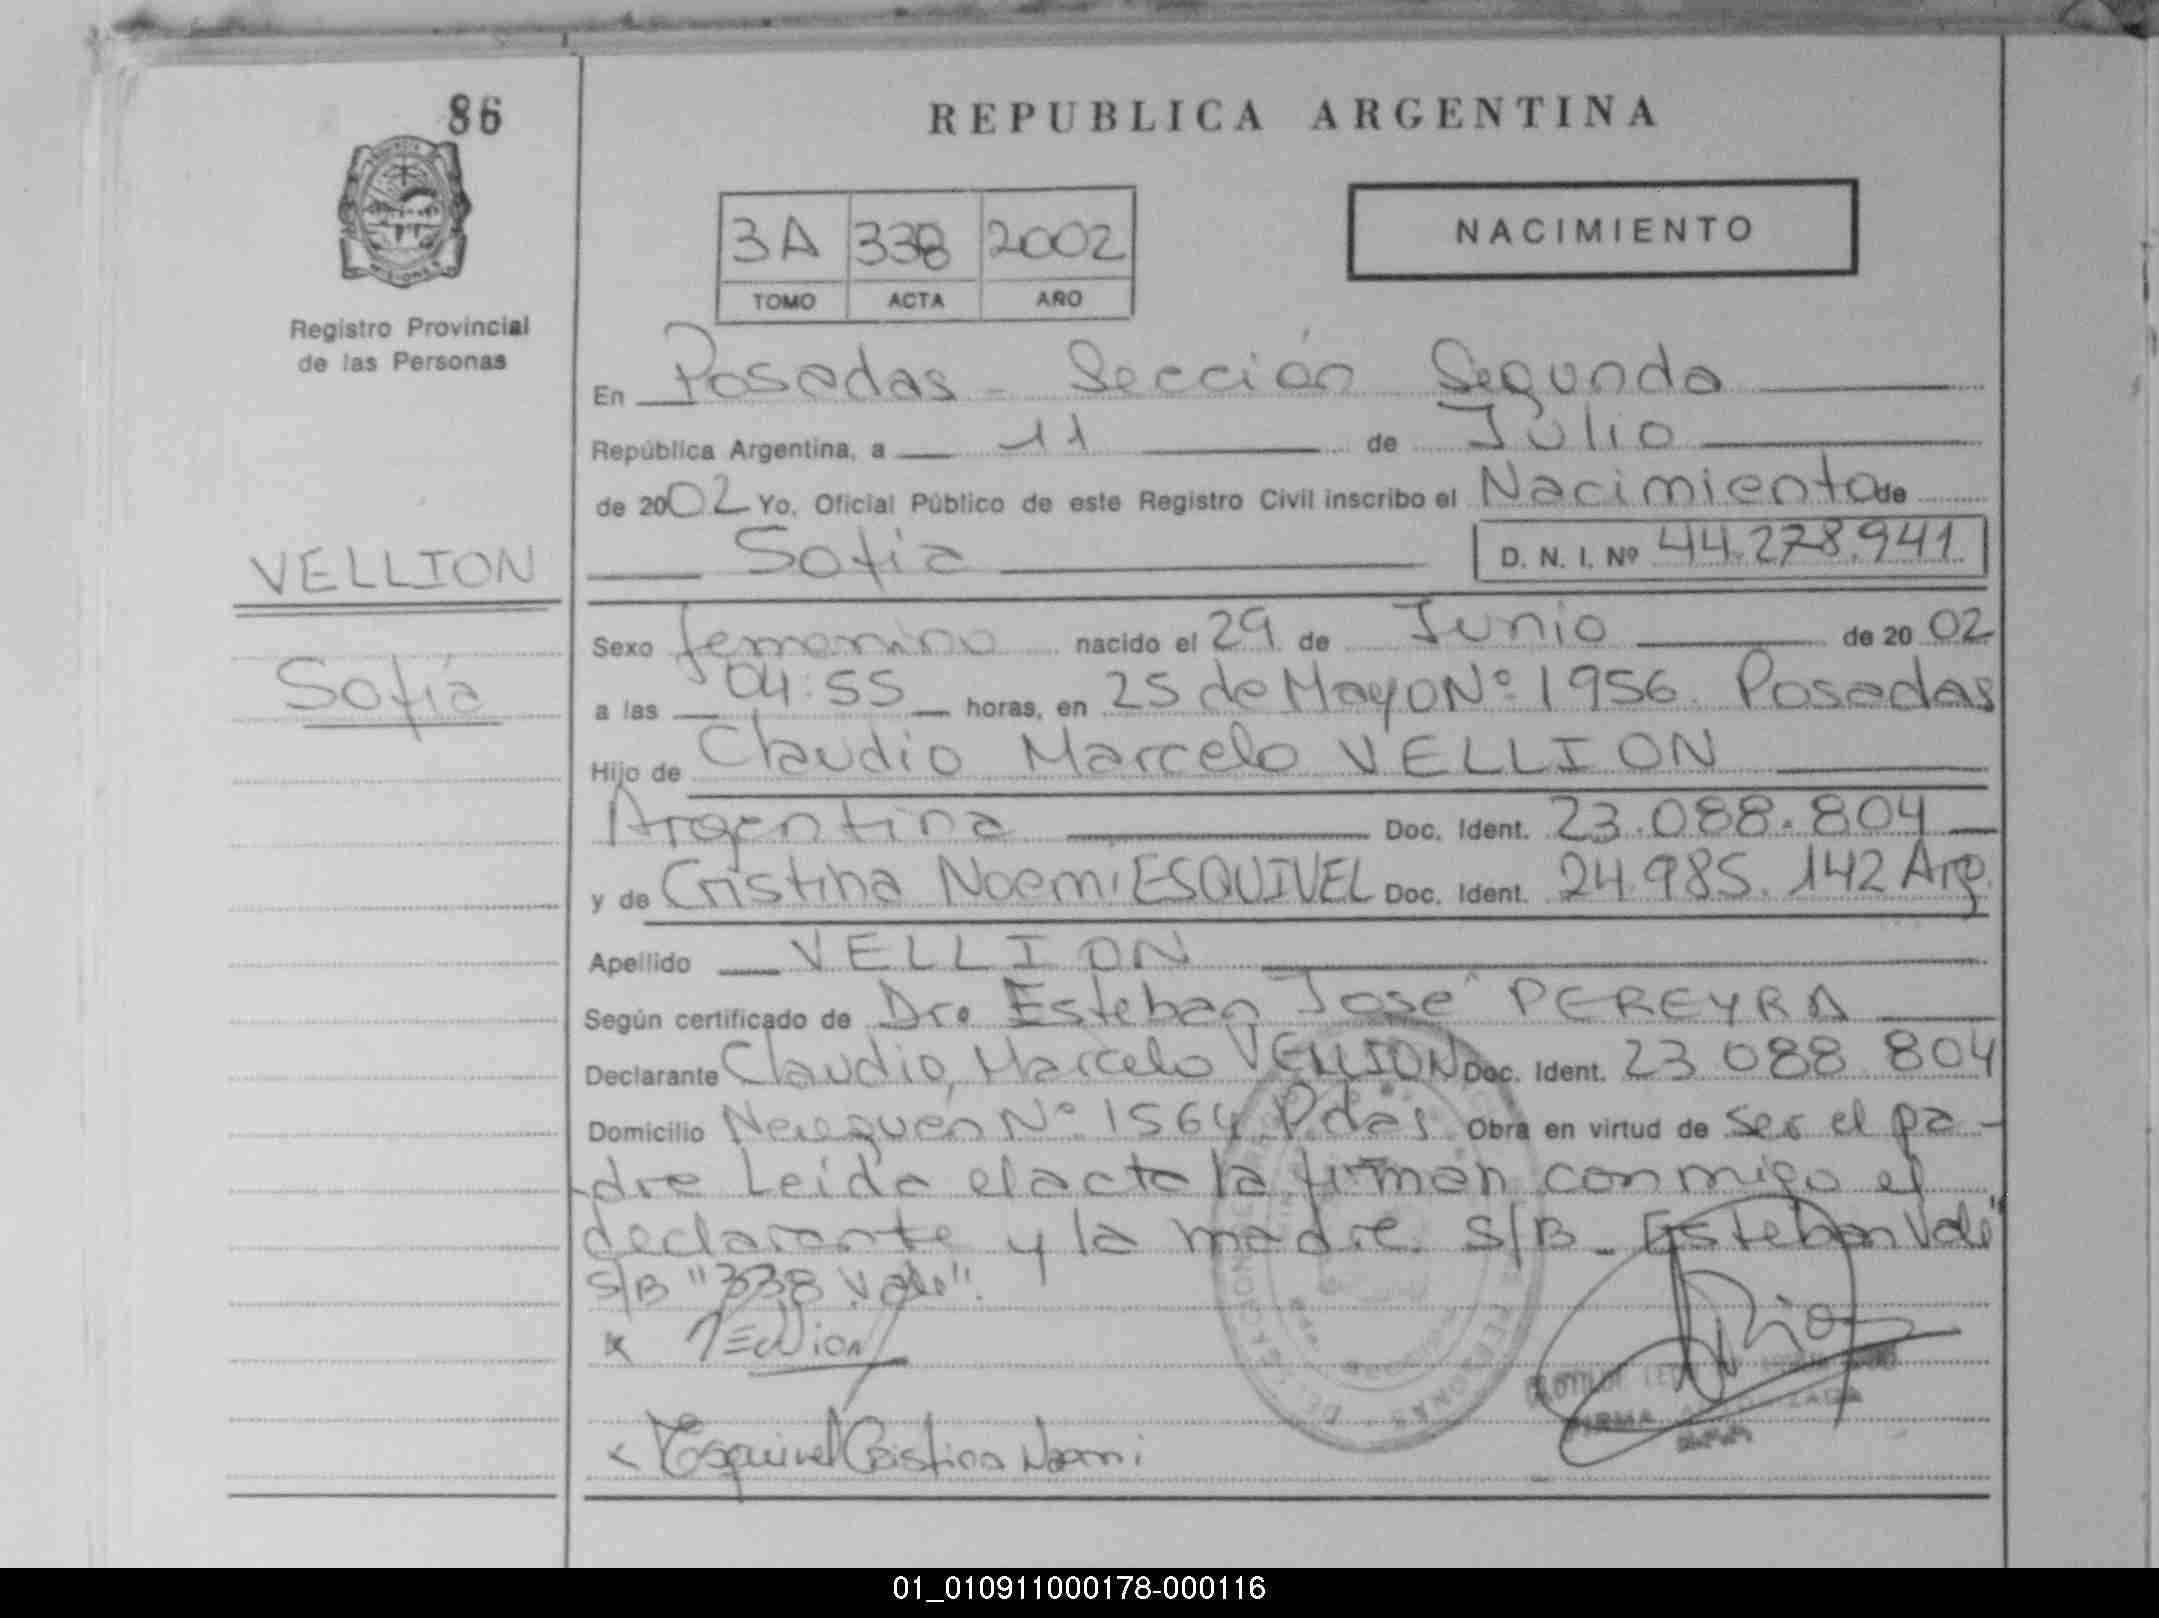 86
REPUBLICA ARGENTINA
3A 338 2002
TOMO ACTA AÑO
NACIMIENTO
Registro Provincial
de las Personas
En Posadas - Sección Segunda
República Argentina, a 11 de Julio
de 2002 Yo, Oficial Público de este Registro Civil inscribo el Nacimiento de
Sofia D. N. I. Nº 44.278.941
VELLION
Sofia
Sexo femenino nacido el 29 de Junio de 20 02
a las 04:55 horas, en 25 de Mayo Nº 1956. Posadas
Hijo de Claudio Marcelo VELLION
Argentina Doc. Ident. 23.088.804
y de Cristina Noemi ESQUIVEL Doc. Ident. 24.985.142 Arg.
Apellido VELLION
Según certificado de Dro Esteban José PEREYRA
Declarante Claudio Marcelo VELLION Doc. Ident. 23 088 804
Domicilio Neuquén Nº 1564 Pdas Obra en virtud de ser el pa-
dre Leida el acta la firman conmigo el
declarante y la madre. S/B - Esteban Vale"
S/B "338 Vale".
x Vellion
x Esquivel Cristina Noemi
FIRMA
01_010911000178-000116